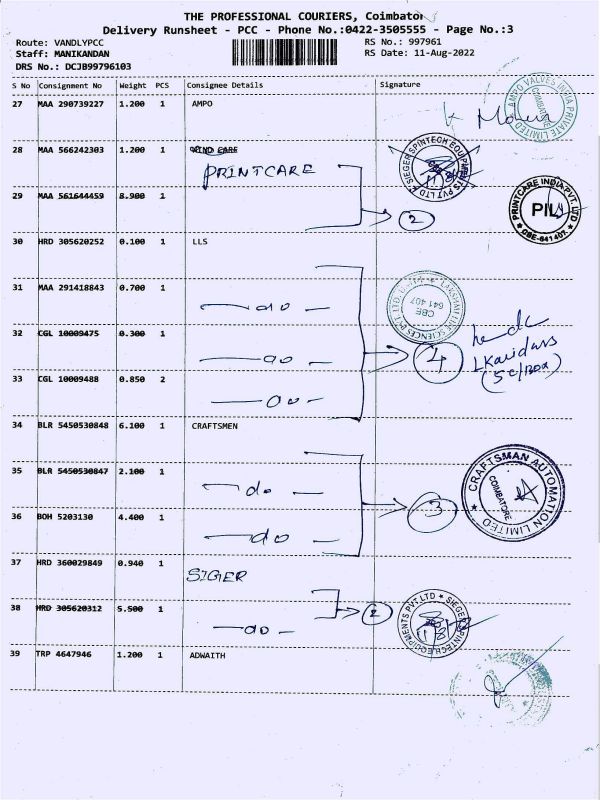 THE PROFESSIONAL COURIERS, Coimbator
Delivery Runsheet - PCC - Phone No.:0422-3505555 - Page No.:3
Route: VANDLYPCC RS No.: 997961
Staff: MANIKANDAN RS Date: 11-Aug-2022
DRS No.: DCJB99796103
S No Consignment No Weight PCS Consignee Details Signature
27 MAA 290739227 1.200 1 AMPO
AMPO VALVES INDIA PRIVATE LIMITED COIMBATORE
28 MAA 566242303 1.200 1 WIND CARE
PRINTCARE
SIEGER SPINTECH EQUIPMENTS PVT LTD
29 MAA 561644459 8.900 1
2
PRINTCARE INDIA PVT. LTD. PIL CBE-641 407.
30 HRD 305620252 0.100 1 LLS
31 MAA 291418843 0.700 1
do
CBE 641 407
32 CGL 10009475 0.300 1
do
4
33 CGL 10009488 0.850 2
do
34 BLR 5450530848 6.100 1 CRAFTSMEN
35 BLR 5450530847 2.100 1
do
3
CRAFTSMAN AUTOMATION LIMITED COIMBATORE
36 BOH 5203130 4.400 1
do
37 HRD 360029849 0.940 1
SIGER
38 HRD 305620312 5.500 1
do
2
SIEGER SPINTECH EQUIPMENTS PVT LTD
39 TRP 4647946 1.200 1 ADWAITH